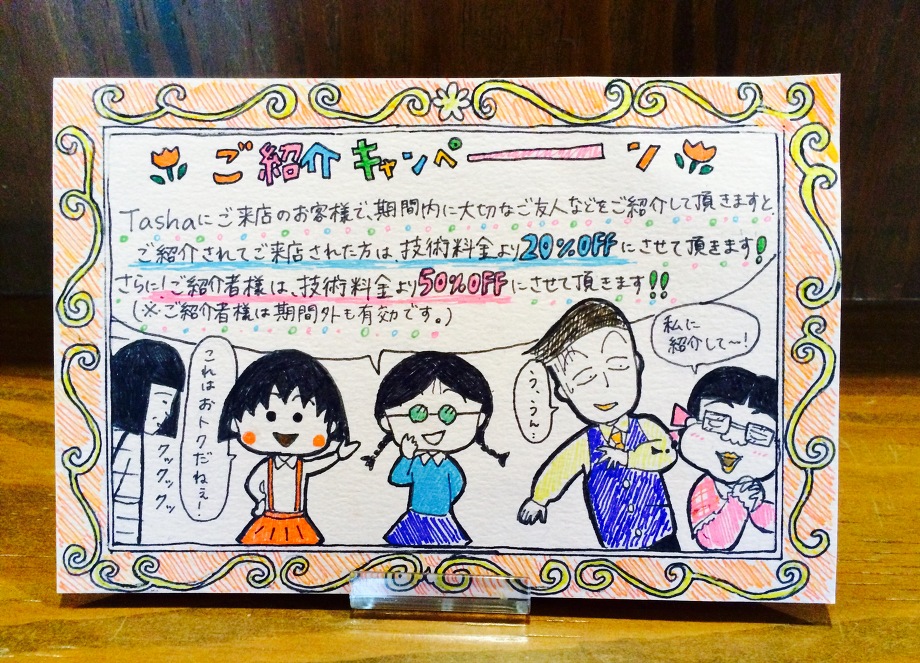 ご紹介キャンペーン
Tashaにご来店のお客様で、期間内に大切なご友人などをご紹介して頂きますと、
ご紹介されてご来店された方は、技術料金より20%OFFにさせて頂きます!
さらに!ご紹介者様は、技術料金より50%OFFにさせて頂きます!!
(※ご紹介者様は期間外も有効です。)
クックックッ
これはおトクだねぇ!
う、うん…
私に
紹介して〜!